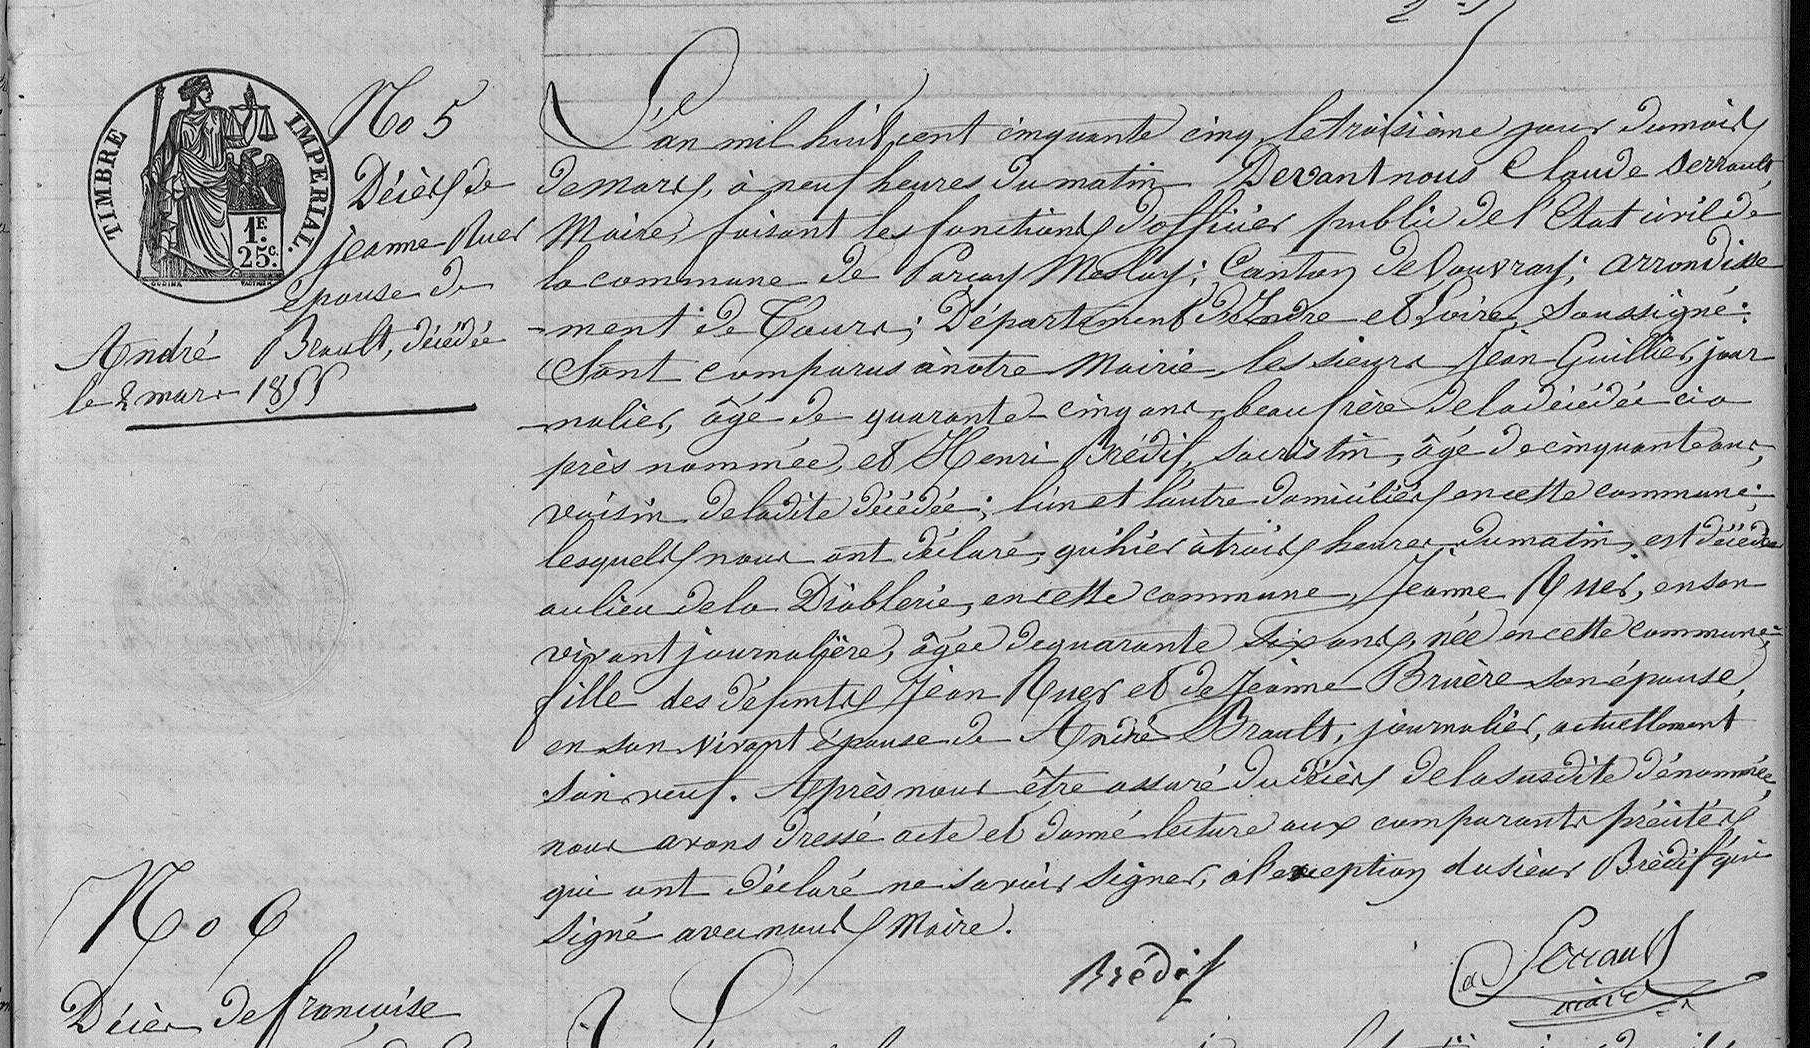 TIMBRE IMPERIAL.
1F.
25c.
No 5
Décès de
jeanne Ruer
épouse de
André Brault, décédée
le 2 mars 1855
L'an mil huit cent cinquante cinq, le troisième jour du mois
de mars, à neuf heures du matin Devant nous Claude Serrault,
Maire, faisant les fonctions d'officier public de l'Etat civil de
la commune de Parçay Meslay; Canton de Vouvray; arrondisse
-ment de Tours; Département d'Indre et Loire, soussigné:
Sont comparus à notre Mairie, les sieurs Jean Guillier, jour
-nalier, âgé de quarante cinq ans, beau frère de la décédée ci a
près nommée, et Henri Brédif, sacristin, âgé de cinquante ans,
voisin de la dite décédée; l'un et l'autre domiciliés en cette commune;
lesquels nous ont déclaré, qu'hier à trois heures du matin, est décédée
au lieu de la Diablerie, en cette commune, Jeanne Ruer, en son
vivant journalière, âgée de quarante six ans, née en cette commune;
fille des défunts Jean Ruer et de Jeanne Bruère son épouse,
en son vivant épouse de André Brault, journalier, actuellement
son veuf. Après nous être assuré du décès de la susdite dénommée,
nous avons dressé acte et donné lecture aux comparants précités
qui ont déclaré ne savoir signer, à l'exception du sieur Brédif qui
signé avec nous Maire.
Brédif
Serrault
maire
No 6
Décès de françoise